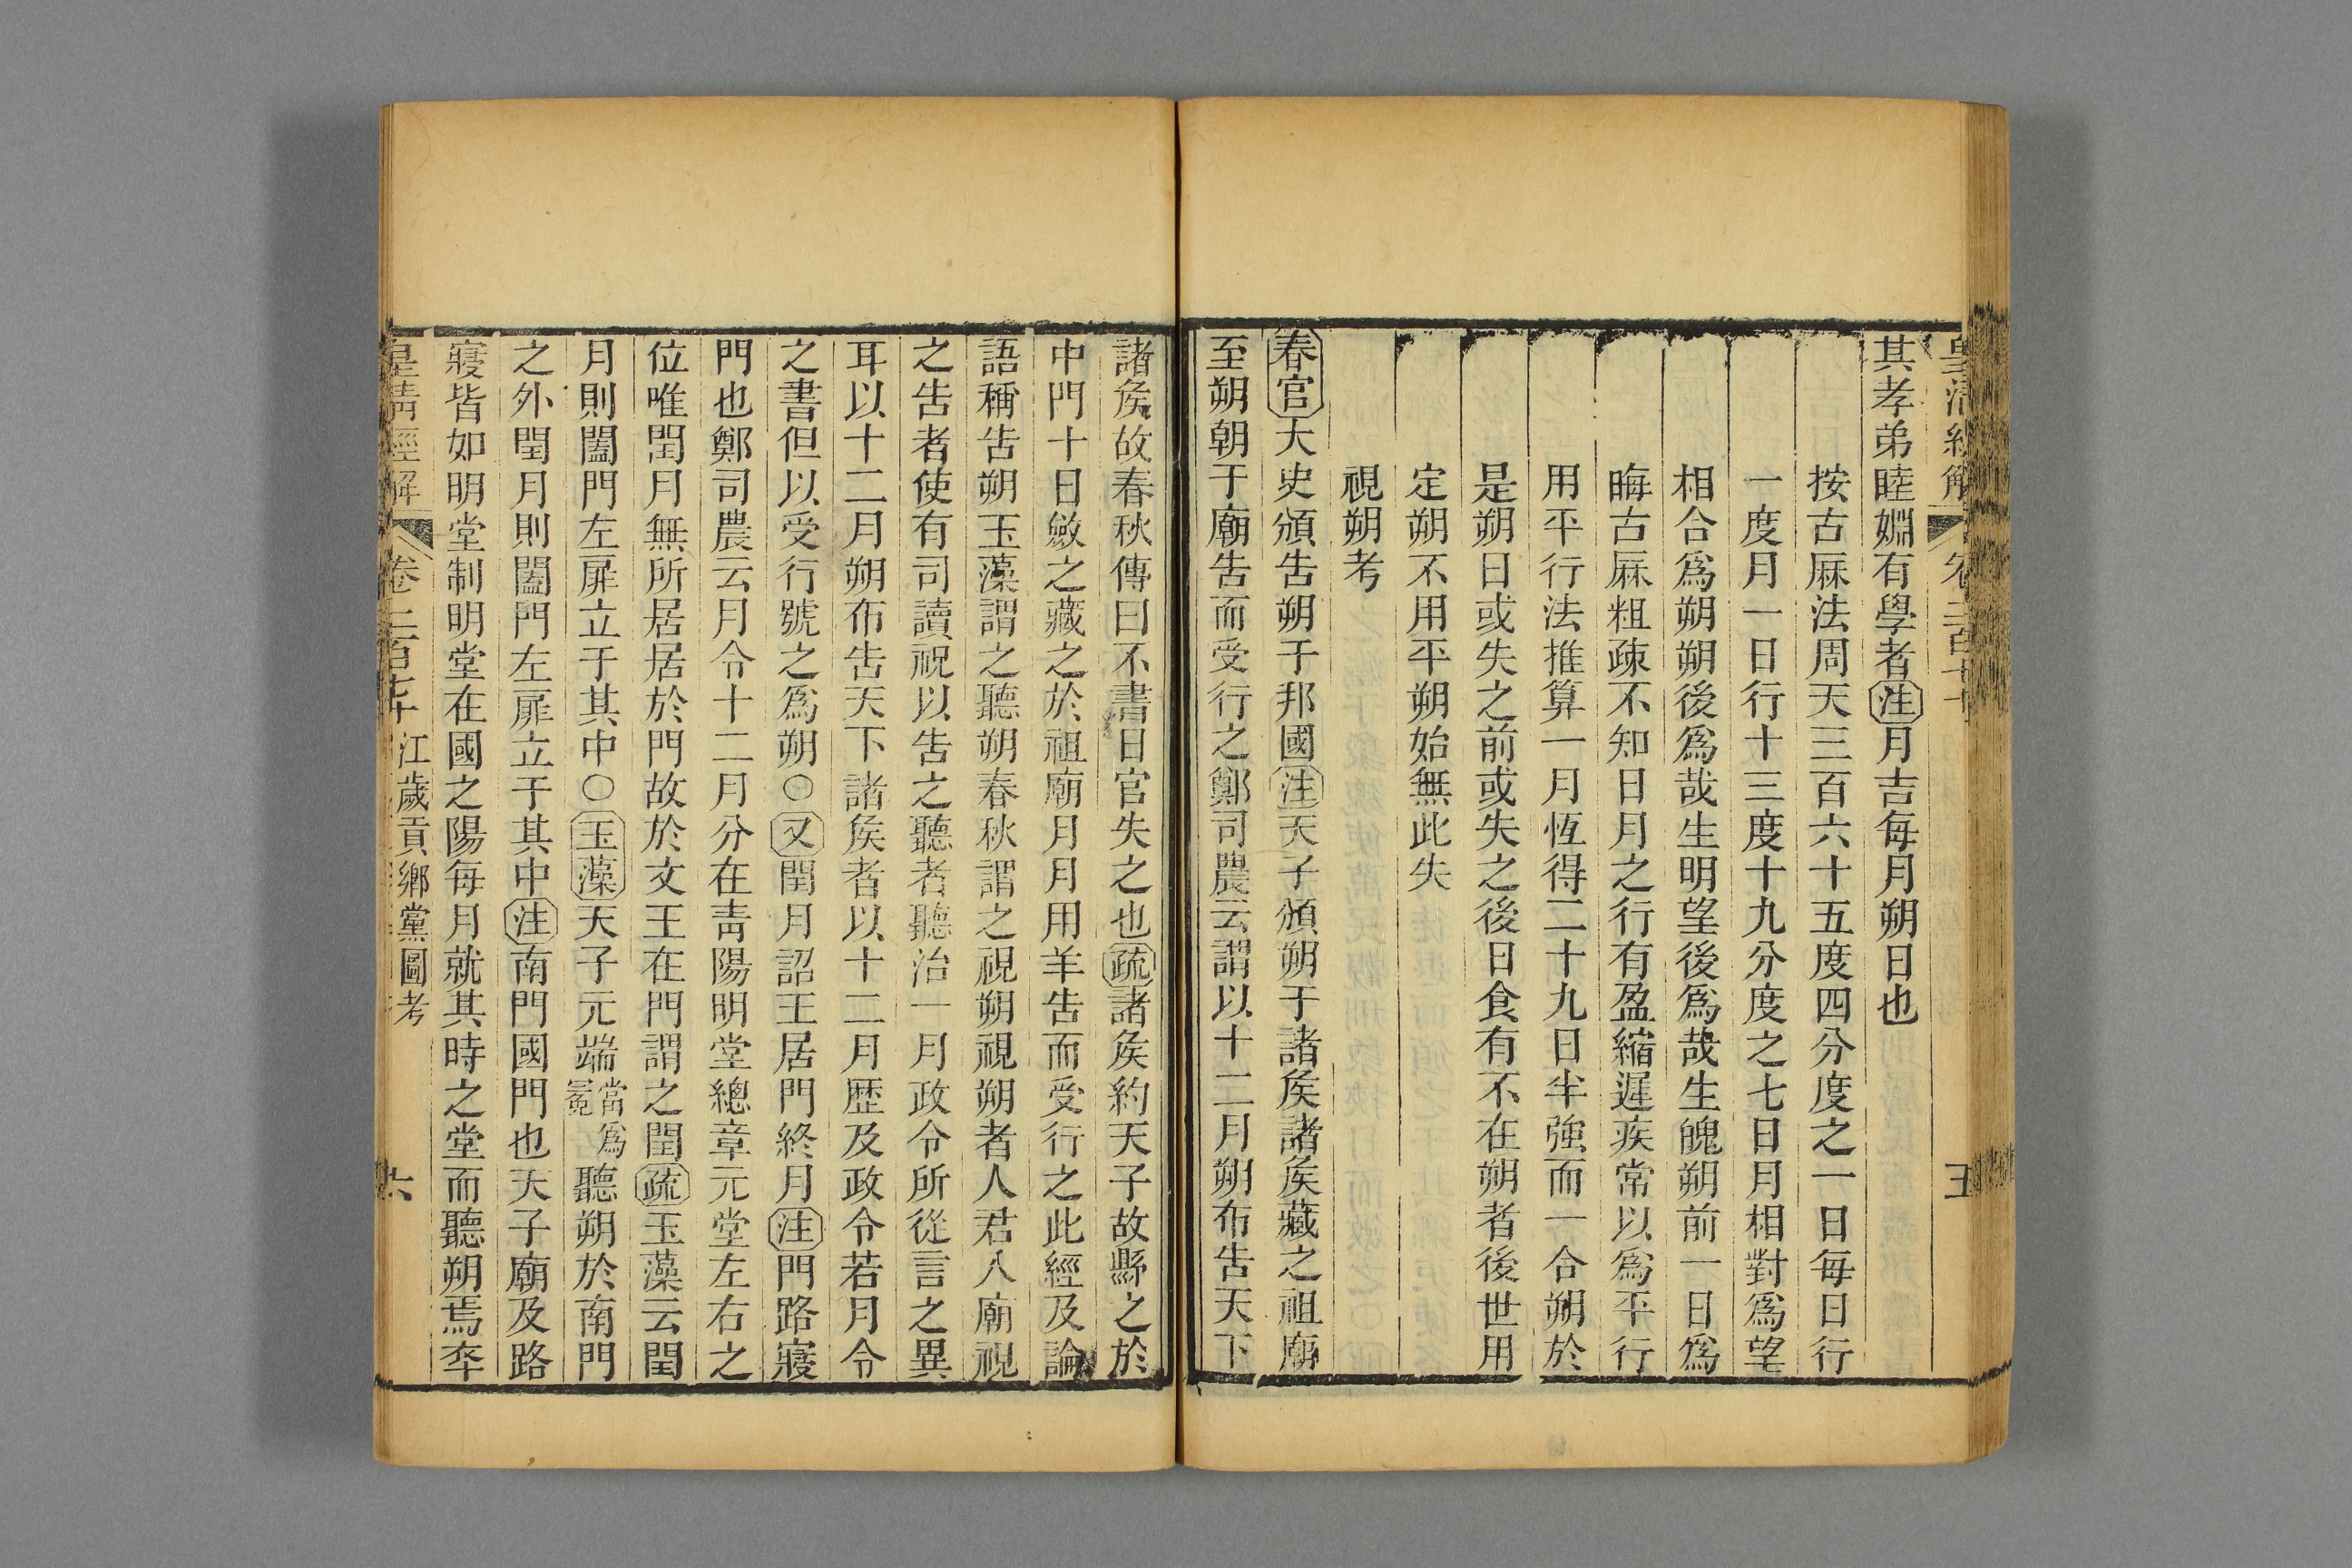 皇清經解 卷二百七十 五
其孝弟睦婣有學者注月吉每月朔日也
按古厤法周天三百六十五度四分度之一日每日行
一度月一日行十三度十九分度之七日月相對爲望
相合爲朔朔後爲哉生明望後爲哉生魄朔前一日爲
晦古厤粗疎不知日月之行有盈縮遲疾常以爲平行
用平行法推算一月恆得二十九日半強而一合朔於
是朔日或失之前或失之後日食有不在朔者後世用
定朔不用平朔始無此失
視朔考
春官大史頒告朔于邦國注天子頒朔于諸矦諸矦藏之祖廟
至朔朝于廟告而受行之鄭司農云謂以十二月朔布告天下
諸矦故春秋傳曰不書日官失之也疏諸矦約天子故縣之於
中門十日斂之藏之於祖廟月月用羊告而受行之此經及論
語稱告朔玉藻謂之聽朔春秋謂之視朔視朔者人君入廟視
之告者使有司讀祝以告之聽者聽治一月政令所從言之異
耳以十二月朔布告天下諸矦者以十二月歷及政令若月令
之書但以受行號之爲朔○又閏月詔王居門終月注門路寢
門也鄭司農云月令十二月分在靑陽明堂總章元堂左右之
位唯閏月無所居居於門故於文王在門謂之閏疏玉藻云閏
月則闔門左扉立于其中○玉藻天子元端當爲冕聽朔於南門
之外閏月則闔門左扉立于其中注南門國門也天子廟及路
寢皆如明堂制明堂在國之陽每月就其時之堂而聽朔焉卒
皇清經解 卷二百七十 江歲貢鄉黨圖考 六